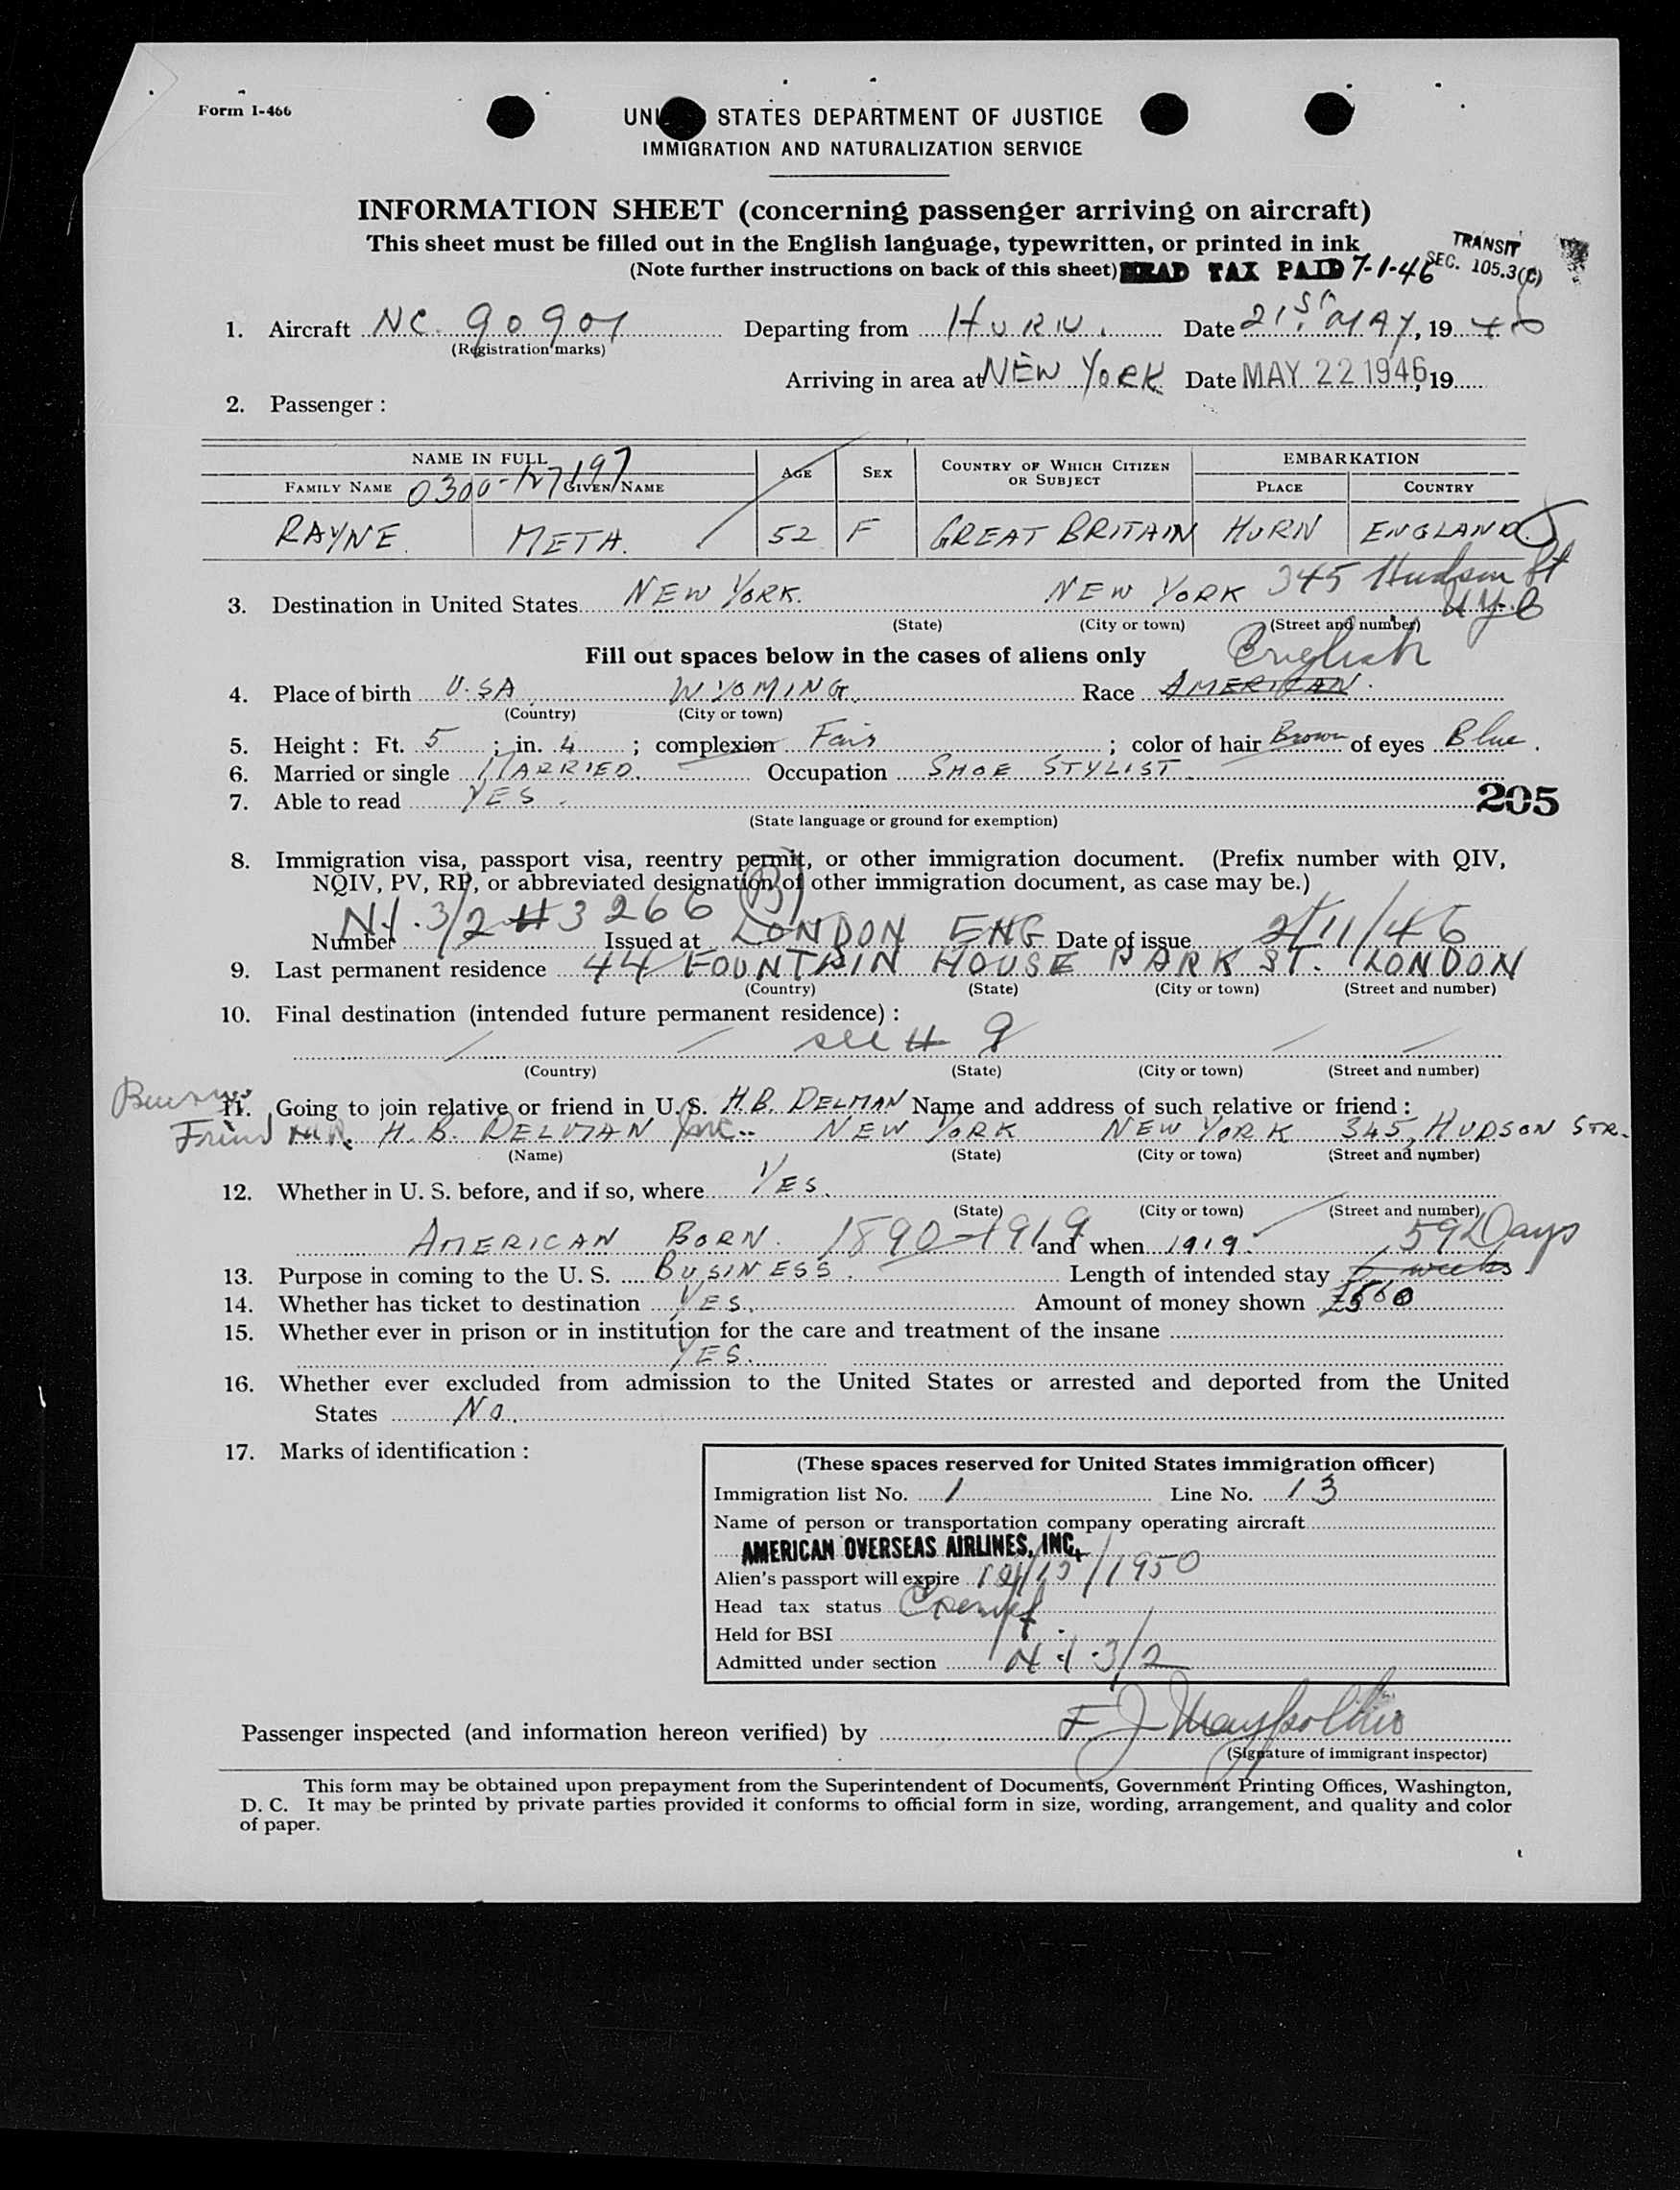 Form I-466
UNI STATES DEPARTMENT OF JUSTICE
IMMIGRATION AND NATURALIZATION SERVICE
INFORMATION SHEET (concerning passenger arriving on aircraft)
This sheet must be filled out in the English language, typewritten, or printed in ink
(Note further instructions on back of this sheet) HEAD TAX PAID 7-1-46 TRANSIT SEC. 105.3(C)
1. Aircraft NC 90907 Departing from HURN. Date 21ST MAY, 19 46
(Registration marks)
Arriving in area at NEW YORK Date MAY 22 1946, 19
2. Passenger :
NAME IN FULL AGE SEX COUNTRY OF WHICH CITIZEN OR SUBJECT EMBARKATION
FAMILY NAME 0300-127197 GIVEN NAME PLACE COUNTRY
RAYNE. METH. 52 F GREAT BRITAIN HURN ENGLAND.
345 Hudson St
3. Destination in United States NEW YORK. NEW YORK NYC
(State) (City or town) (Street and number)
Fill out spaces below in the cases of aliens only English
4. Place of birth U.SA WYOMING. Race AMERICAN.
(Country) (City or town)
5. Height : Ft. 5 ; in. 4 ; complexion Fair ; color of hair Brown of eyes Blue.
6. Married or single MARRIED. Occupation SHOE STYLIST.
7. Able to read YES. 205
(State language or ground for exemption)
8. Immigration visa, passport visa, reentry permit, or other immigration document. (Prefix number with QIV,
NQIV, PV, RP, or abbreviated designation of other immigration document, as case may be.)
(B)
Number N.I. 3/2 # 3266 Issued at LONDON ENG Date of issue 2/11/46
9. Last permanent residence 44 FOUNTAIN HOUSE PARK ST. LONDON
(Country) (State) (City or town) (Street and number)
10. Final destination (intended future permanent residence) :
see # 9
(Country) (State) (City or town) (Street and number)
Business
11. Going to join relative or friend in U. S. H.B. DELMAN Name and address of such relative or friend :
Friend MR. H. B. DELMAN Inc. NEW YORK NEW YORK 345, HUDSON STR.
(Name) (State) (City or town) (Street and number)
12. Whether in U. S. before, and if so, where YES.
(State) (City or town) (Street and number)
AMERICAN BORN. 1890-1919 and when 1919. 59 Days
13. Purpose in coming to the U. S. BUSINESS. Length of intended stay weeks
14. Whether has ticket to destination YES. Amount of money shown
15. Whether ever in prison or in institution for the care and treatment of the insane
YES.
16. Whether ever excluded from admission to the United States or arrested and deported from the United
States NO.
17. Marks of identification :
(These spaces reserved for United States immigration officer)
Immigration list No. 1 Line No. 13
Name of person or transportation company operating aircraft
AMERICAN OVERSEAS AIRLINES, INC.
Alien's passport will expire /1950
Head tax status Exempt
Held for BSI
Admitted under section N.I. 3/2
Passenger inspected (and information hereon verified) by
(Signature of immigrant inspector)
This form may be obtained upon prepayment from the Superintendent of Documents, Government Printing Offices, Washington,
D. C. It may be printed by private parties provided it conforms to official form in size, wording, arrangement, and quality and color
of paper.